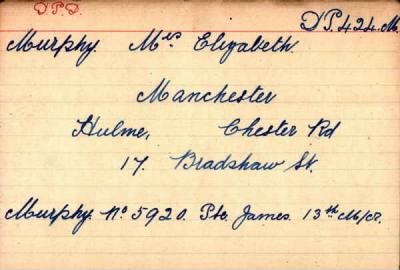 D.P.D.
D.P. 424. M.
Murphy. Mrs Elizabeth.
Manchester
Hulme, Chester Rd
17. Bradshaw St.
Murphy. No 5920. Pte. James. 13th M/cr.